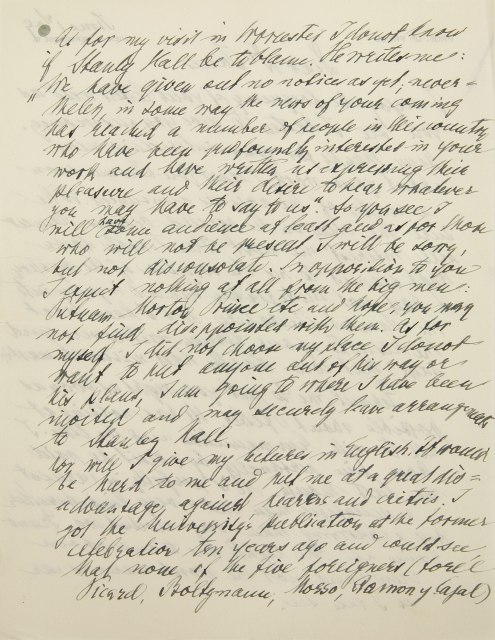 As for my visit in Worcester I do not know
if Stanley Hall be to blame. He writes me:
"We have given out no notices as yet, never=
theless in some way the news of your coming
has reached a number of people in this country
who have been profoundly interested in your
work and have written us expressing their
pleasure and their desire to hear whatever
you may have to say to us". So you see I
will have some audience at least and as for those
who will not be present I will be sorry,
but not disconsolate. In opposition to you
I expect nothing at all from the big men:
Putnam, Morton Prince etc and hope you may
not find disappointed with them. As for
myself I did not choose my place I do not
want to put anyone out of his way or
his plans, I am going to where I have been
invited and may securely leave arrangements
to Stanley Hall.
Nor will I give my lectures in English, it would
be hard to me and put me at a great dis=
advantage against hearers and critics. I
got the University's publication at the former
celebration ten years ago and could see
that none of the five foreigners (Forel
Picard, Boltzmann, Mosso, Ramon y Cajal)